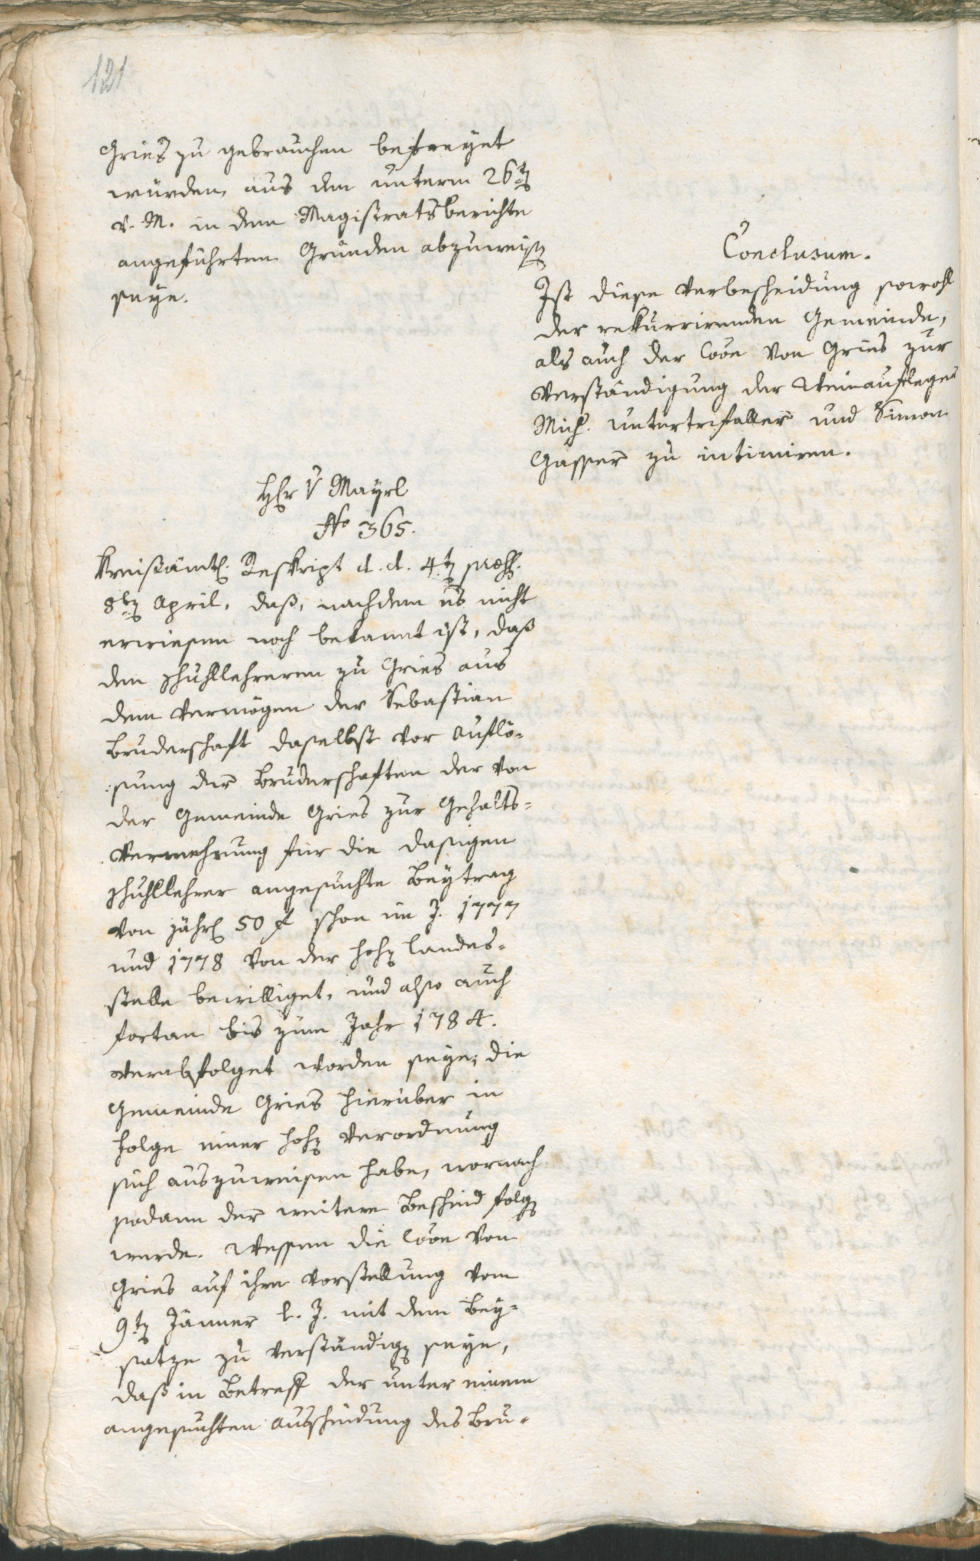 121
Gries zu gebrauchen befreyet
würden, aus dem unterm 26tn
v. M. in dem Magistratsberichte
angeführten Gründen abzuweisen
seye.
Conclusum.
Ist diese Verbescheidung sowohl
der rekurrirenden Gemeinde,
als auch der Cööe von Gries zur
Verständigung der Weinaufleger
Mich. Untertrifaller und Simon
Gasser zu intimiren.
Hr v Mayrl
No 365.
Kreisämtl. Reskript d. d. 4tn præs.
8tn April, daß, nachdem es nicht
erwiesen noch bekannt ist, daß
den Schullehrern zu Gries aus
dem Vermögen der Sebastian
Bruderschaft daselbst vor Auflö-
sung der Bruderschaften der von
der Gemeinde Gries zur Gehalts-
Vermehrung für die dasigen
Schullehrer angesuchte Beytrag
von jährl 50 f schon im J. 1777
und 1778 von der hohen Landes-
stelle bewilliget, und also auch
fortan bis zum Jahr 1784.
verabfolget worden seye; die
Gemeinde Gries hierüber in
Folge einer hohen Verordnung
sich auszuweisen habe, wornach
sodann der weitere Bescheid folgen
werde. Wessen die Cööe von
Gries auf ihre Vorstellung vom
9tn Jänner l. J. mit dem Bey-
satze zu verständigen seye,
daß in Betreff der unter einem
angesuchten Ausscheidung des Bru-